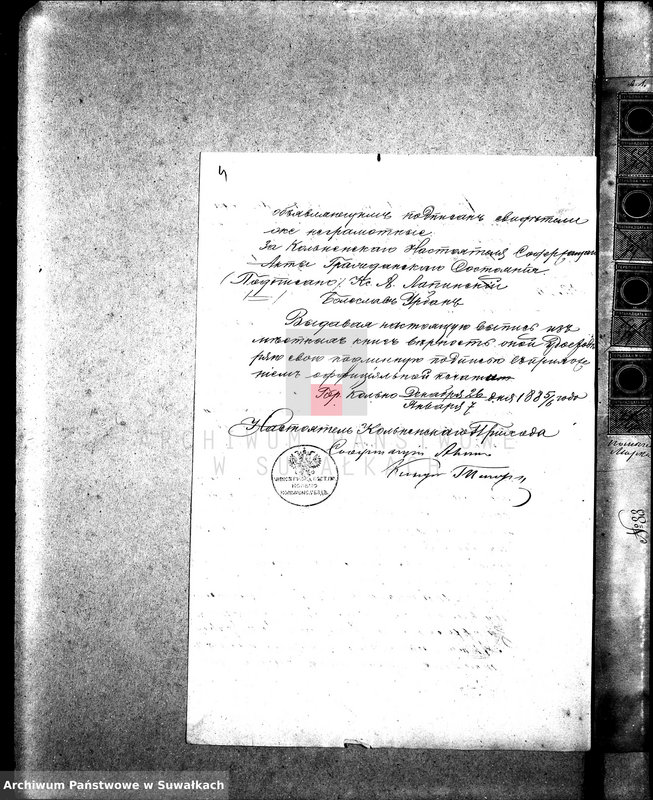 4
объявляющимъ подписанъ свидѣтели
же неграмотные.
За Кольненскаго Настоятеля Содержащій
Акты Гражданскаго Состоянія
(Подписано) Кс. А. Лапинскій
Болеславъ Урбанъ
Выдавая настоящую выпись изъ
мѣстныхъ книгъ вѣрность оной
свою подлинную подписью съ приложе-
ніемъ оффиціальной печати
Гор. Кольно Декабря 26 / Января 7 дня 1885/6 года
Настоятель Кольненскаго Прихода
Содержащій Акты
Ксендзъ
ARCHIWUM PAŃSTWOWE
W SUWAŁKACH
№ 83
Archiwum Państwowe w Suwałkach